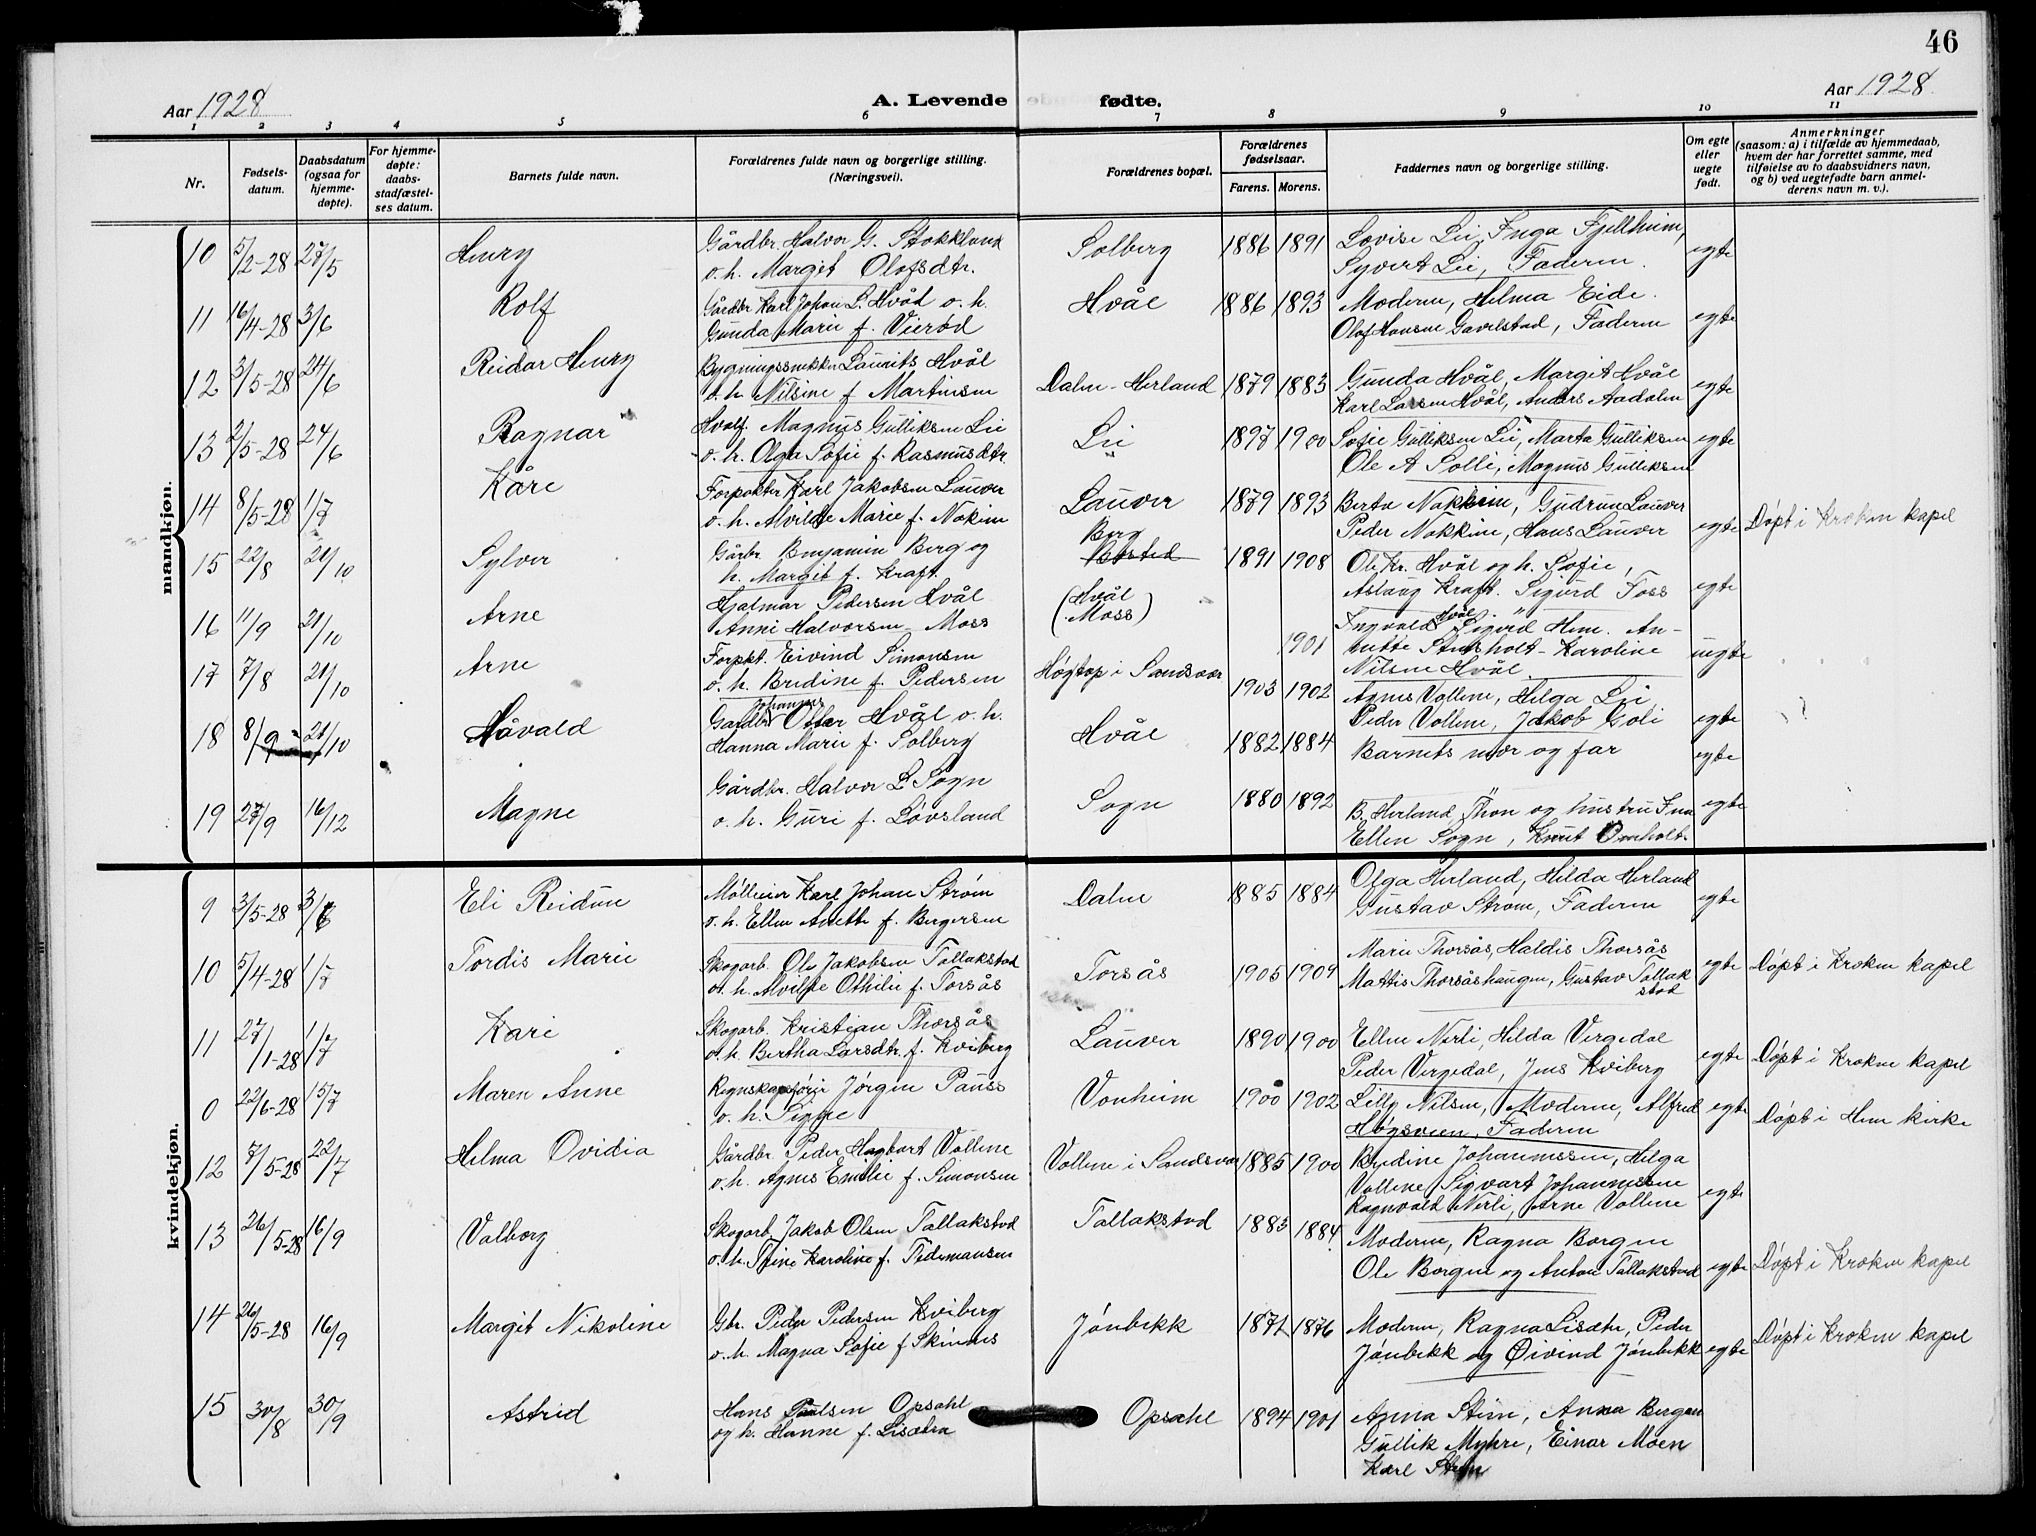 46
Aar 1928 A. Levende fødte. Aar 1928
1 2 3 4 5 6 7 8 9 10 11
Nr. Fødsels-datum. Daabsdatum (ogsaa for hjemme-døpte). For hjemme-døpte: daabs-stadfæstel-ses datum. Barnets fulde navn. Forældrenes fulde navn og borgerlige stilling. (Næringsvei). Forældrenes bopæl. Forældrenes fødselsaar. Farens. Morens. Faddernes navn og borgerlige stilling. Om egte eller uegte født. Anmerkninger (saasom: a) i tilfælde av hjemmedaab, hvem der har forrettet samme, med tilføielse av to daabsvidners navn, og b) ved uegtefødte barn anmel-derens navn m. v.).
mandkjøn.
10 5/2-28 27/5 Henry Gårdbr. Halvor G. Stokkland Solberg 1886 1891 Lovise Lii, Inga Fjellheim, egte
o. h. Margit Olofsdtr. Syvert Lii, Faderen.
11 16/4-28 3/6 Rolf Gårdbr Karl Johan L. Hvål o. h. Hvål 1886 1893 Moderen, Helma Eide. egte
Gunda Marie f. Vierød Olof Hansen Gavelstad, Faderen
12 3/5-28 24/6 Reidar Henry Bygningssnekker Laurits Hvål Dalen-Herland 1879 1883 Gunda Hvål, Margit Hvål egte
o. h. Nilsine f. Martinsen Karl Larsen Hvål, Anders Aadalen
13 2/5-28 24/6 Ragnar Hvalf. Magnus Gulliksen Lii Lii 1897 1900 Sofie Gulliksen Lii, Marta Gulliksen egte
o. h. Olga Sofie f. Rasmusdtr. Ole A Solli, Magnus Gulliksen
14 8/5-28 1/7 Kåre Forpakter Karl Jakobsen Lauver Lauver 1879 1893 Berta Nakkim, Gudrun Lauver egte Døpt i Kroken kapel
o. h. Alvilde Marie f. Nakim Peder Nakkim, Hans Lauver
15 22/8 21/10 Sylver Gårbr Benjamin Berg og Berg 1891 1908 Ole Kr. Hvål og h. Sofie, egte
h. Margit f. Kraft. Aslaug Kraft. Sigurd Foss
16 11/9 21/10 Arne Hjalmar Pedersen Hvål (Hvål 1901 Ingvald Hvål, Sigurd Hem. An- uegte
Anni Halvorsen Moss Moss) nette Stensholt - Karoline
Nilsen Hvål.
17 7/8 21/10 Arne Forpkt. Eivind Simonsen Høgtop i Sandsvær 1903 1902 Agnes Vollene, Helga Lii egte
o. h. Bredine f. Pedersen Peder Vollene, Jakob Goli
18 8/9 21/10 Håvald Gardbr Johannes Otter Hvål o. h. Hvål 1882 1884 Barnets mor og far egte
Hanna Marie f. Solberg
19 27/9 16/12 Magne Gårdbr. Halvor L. Sogn Sogn 1880 1892 B. Herland Thon og hustru Ina egte
o. h. Guri f. Løvsland Ellen Sogn, Knut Omholt.
kvindekjøn.
9 3/5-28 3/6 Eli Reidun Mølleier Karl Johan Strøm Dalen 1885 1884 Olga Herland, Hilda Herland egte
o. h. Ellen Anette f. Bergersen Gustav Strøm, Faderen
10 5/4-28 1/7 Tordis Marie Skogarb. Ole Jakobsen Tallakstad Torsås 1905 1909 Marie Thorsås, Haldis Thorsås egte Døpt i Kroken kapel
o. h. Alvilde Othilie f. Torsås Mattis Thorsåshaugen, Gustav Tallakstad
11 27/1-28 1/7 Kari Skogarb. Kristian Thorsås Lauver 1890 1900 Ellen Nerli, Hilda Vergedal egte Døpt i Kroken kapel
o. h. Bertha Larsdtr. f. Kviberg Peder Vergedal, Jens Kviberg
0 22/6-28 15/7 Maren Anne Regnskapsfører Jørgen Pauss Vonheim 1900 1902 Lilly Nilsen, Moderen, Alfred egte Døpt i Hem kirke
o. h. Signe Høgsveen, Faderen
12 7/5-28 22/7 Helma Ovidia Gårdbr. Peder Hagbart Vollene Vollene i Sandsvær 1885 1900 Bredine Johannessen, Helga egte
o. h. Agnes Emilie f. Simonsen Vollene, Sigvart Johannessen
Ragnvald Nerli, Arne Vollene
13 26/5-28 16/9 Valborg Skogarb. Jakob Olsen Tallakstad Tallakstad 1883 1884 Moderen, Ragna Borgen egte Døpt i Kroken kapel
o. h. Trine Karoline f. Tidemansen Ole Borgen og Anton Tallakstad
14 26/5-28 16/9 Margit Nikoline Gbr. Peder Pedersen Kviberg Jønbekk 1871 1876 Moderen, Ragna Lisæter, Peder egte Døpt i Kroken kapel
o. h. Magna Sofie f Skinnes Jønbekk og Øivind Jønbekk
15 30/8 30/9 Astrid Hans Paulsen Opsahl Opsahl 1894 1901 Anna Stem, Anna Bergan
og h. Hanne f. Lisætra Gullik Myhre, Einar Moen
Karl